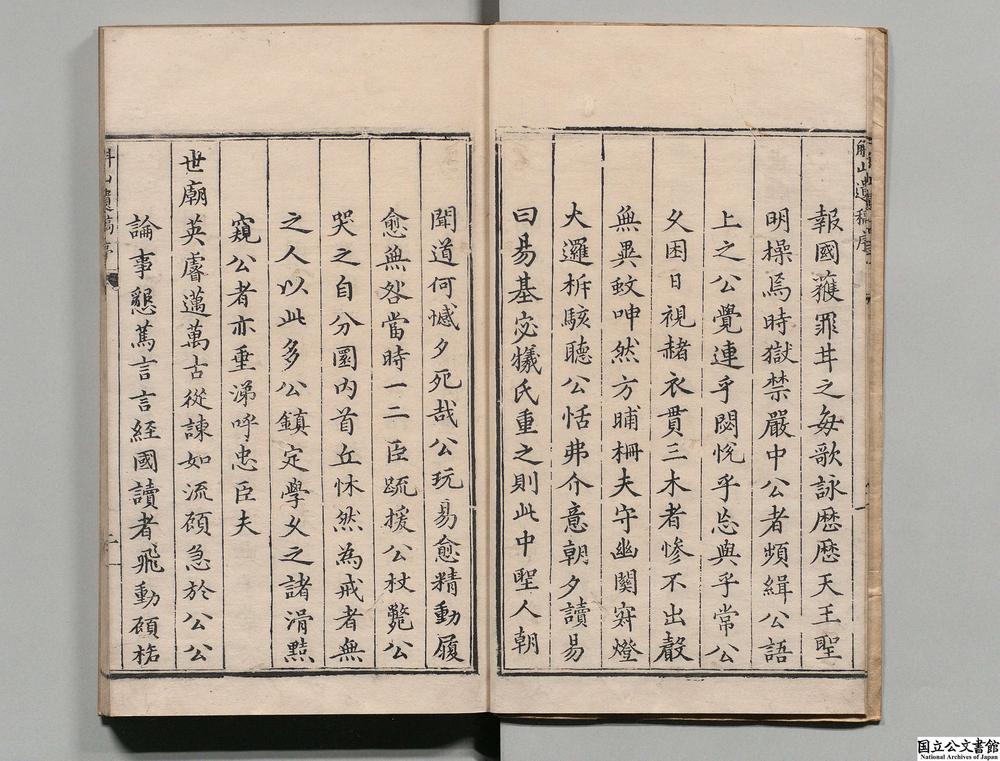 斛山遺稿序
報國獲罪耳之每歌詠歷歷天王聖
明操焉時獄禁嚴中公者頻緝公語
上之公覺連乎閟悅乎忘與乎常公
久困日視赭衣貫三木者慘不出聲
無異蚊呻然方晡柵夫守幽闃穽燈
大邏柝駭聽公恬弗介意朝夕讀易
曰易基宓犧氏重之則此中聖人朝
聞道何憾夕死哉公玩易愈精動履
愈無咎當時一二臣疏援公杖斃公
哭之自分圜內首丘怵然為戒者無
之人以此多公鎮定學久之諸滑黠
窺公者亦垂涕呼忠臣夫
世廟英睿邁萬古從諫如流碩急於公公
論事懇篤言言經國讀者飛動碩桰
斛山遺稿序
二
国立公文書館
National Archives of Japan